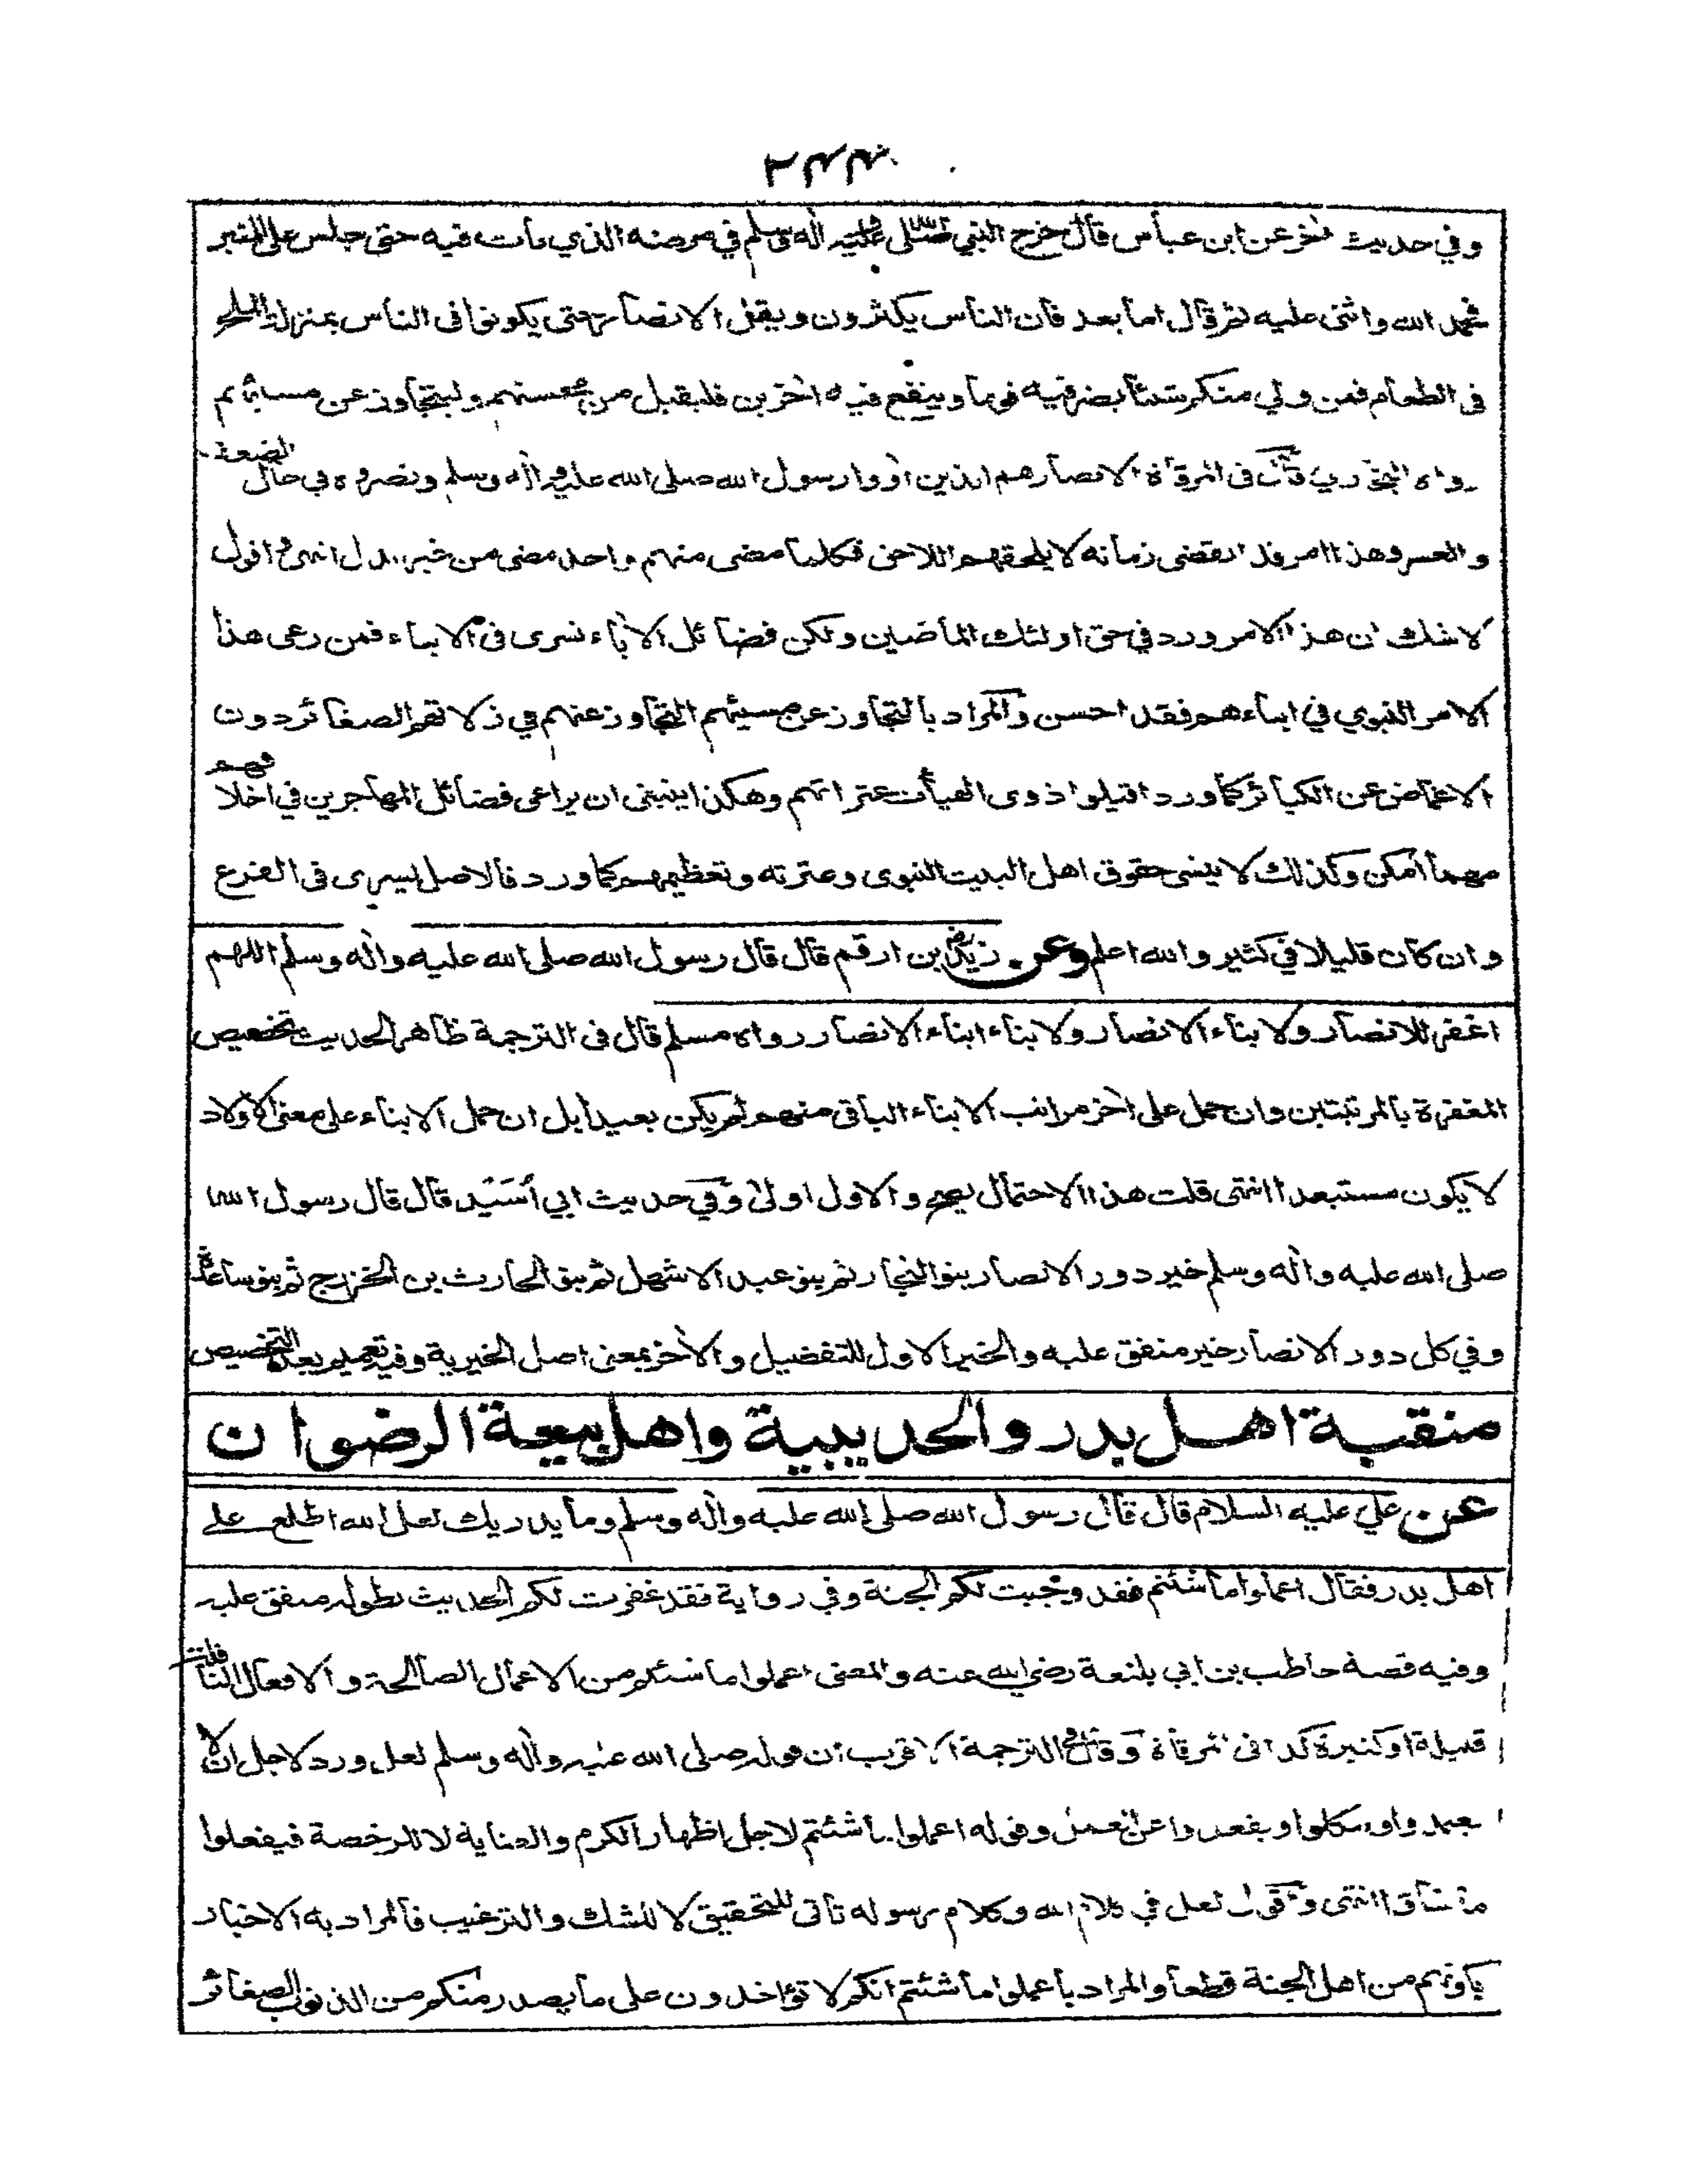 ٢٤٤
وفي حديث اخر عن ابن عباس قال خرج النبي صلى الله عليه واله وسلم في مرضه الذي مات فيه حتى جلس على المنبر
فحمد الله واثنى عليه ثم قال اما بعد فان الناس يكثرون ويقل الانصار حتى يكونوا فى الناس بمنزلة الملح
فى الطعام فمن ولي منكم شيئا يضر فيه قوما وينفع فيه اخرين فليقبل من محسنهم وليتجاوز عن مسيئهم
رواه البخاري قال فى المرقاة الانصار هم الذين اووا رسول الله صلى الله عليه واله وسلم ونصروه في حال الضعف
والعسر وهذا امر قد انقضى زمانه لا يلحقهم اللاحق فكلما مضى منهم واحد مضى من غير بدل انتهى اقول
لا شك ان هذا الامر ورد في حق اولئك الماضين ولكن فضائل الاباء تسرى فى الابناء فمن رعى هذا
الامر النبوي في ابناءهم فقد احسن والمراد بالتجاوز عن مسيئهم التجاوز عنهم في زلاتهم الصغائر دون
الاغماض عن الكبائر كما ورد اقيلوا ذوى الهيأت عثراتهم وهكذا ينبغى ان يراعى فضائل المهاجرين في اخلافهم
مهما امكن وكذلك لا ينسى حقوق اهل البيت النبوى وعترته وتعظيمهم كما ورد فالاصل يسرى فى الفرع
وان كان قليلا في كثير والله اعلم وعن زيد بن ارقم قال قال رسول الله صلى الله عليه واله وسلم اللهم
اغفر للانصار ولابناء الانصار ولابناء ابناء الانصار رواه مسلم قال فى الترجمة ظاهر الحديث تخصيص
المغفرة بالمرتبتين وان حمل على اخر مراتب الابناء الباقى منهم لم يكن بعيدا بل ان حمل الابناء على معنى الاولاد
لا يكون مستبعدا انتهى قلت هذا الاحتمال يصح والاول اولى وفي حديث ابي أسَيْد قال قال رسول الله
صلى الله عليه واله وسلم خير دور الانصار بنو النجار ثم بنو عبد الاشهل ثم بنو الحارث بن الخزرج ثم بنو ساعدة
وفي كل دور الانصار خير متفق عليه والخير الاول للتفضيل والاخر بمعنى اصل الخيرية وفيه تعميم بعد التخصيص
منقبة اهل بدر والحديبية واهل بيعة الرضوان
عن علي عليه السلام قال قال رسول الله صلى الله عليه واله وسلم وما يدريك لعل الله اطلع على
اهل بدر فقال اعملوا ما شئتم فقد وجبت لكم الجنة وفي رواية فقد غفرت لكم الحديث بطوله متفق عليه
وفيه قصة حاطب بن ابي بلتعة رضي الله عنه والمعنى اعملوا ما شئتم من الاعمال الصالحة والافعال النافلة
قليلة او كثيرة كذا فى المرقاة وقال في الترجمة الاقرب ان قوله صلى الله عليه واله وسلم لعل ورد لاجل ان لا
يعتمدوا ويتكلوا ويقعدوا عن العمل وقوله اعملوا ما شئتم لاجل اظهار الكرم والعناية لا للرخصة فيفعلوا
ما شاؤا انتهى واقول لعل في كلام الله وكلام رسوله تاتى للتحقيق لا للشك والترغيب فالمراد به الاخبار
بكونهم من اهل الجنة قطعا والمراد باعملوا ما شئتم انكم لا تؤاخذون على ما يصدر منكم من الذنوب الصغائر